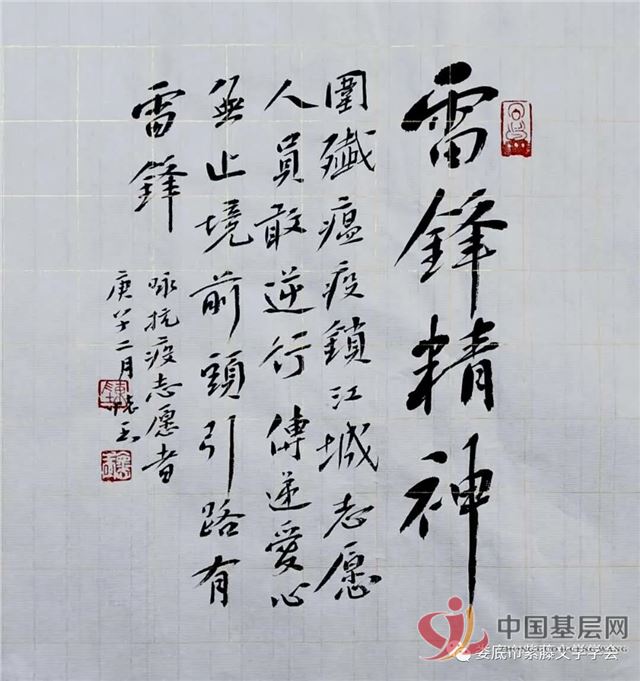 雷鋒精神
圍殲瘟疫鎖江城志愿
人員敢逆行傳递愛心
無止境前頭引路有
雷鋒
咏抗疫志愿者
庚子二月
中国基层网
娄底市紫藤文学学会